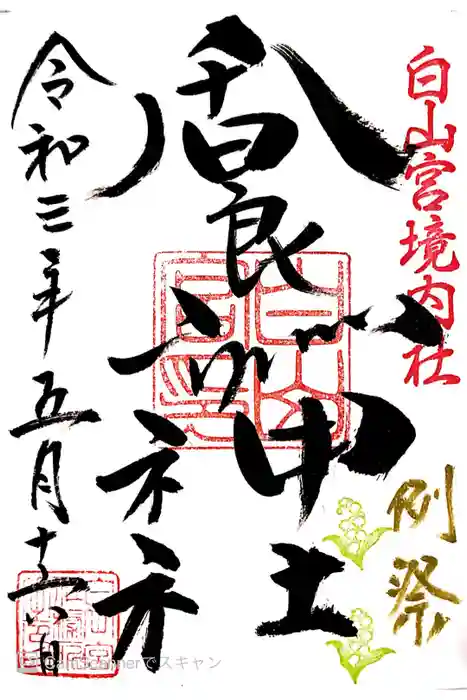 白山宮境内社
例祭
香良洲神社
令和三年五月十六日
CamScannerでスキャン